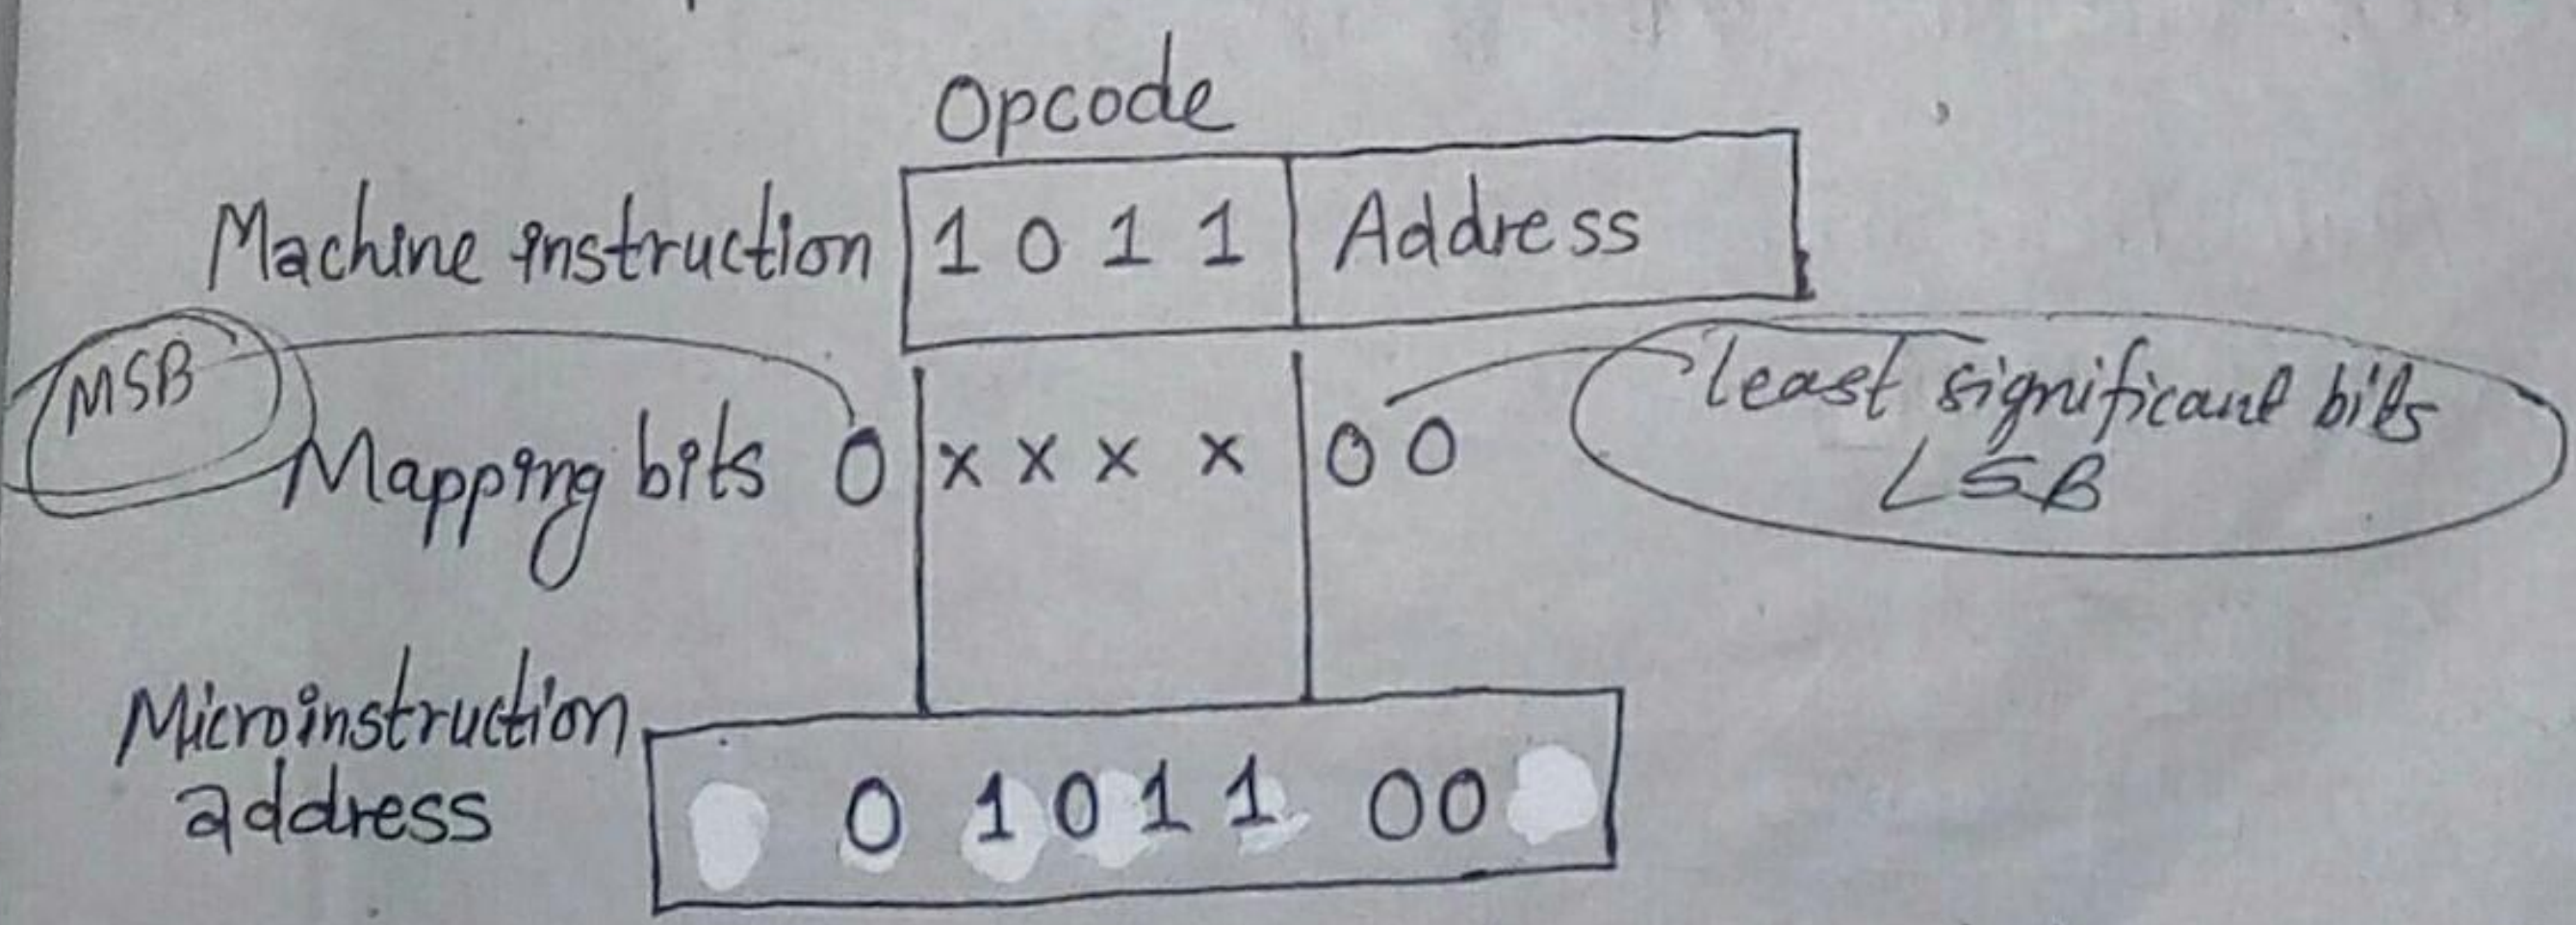 Opcode
Machine instruction 1 0 1 1 Address
MSB
Mapping bits 0 x x x x 0 0
least significant bits
LSB
Microinstruction
address
0 1 0 1 1 0 0